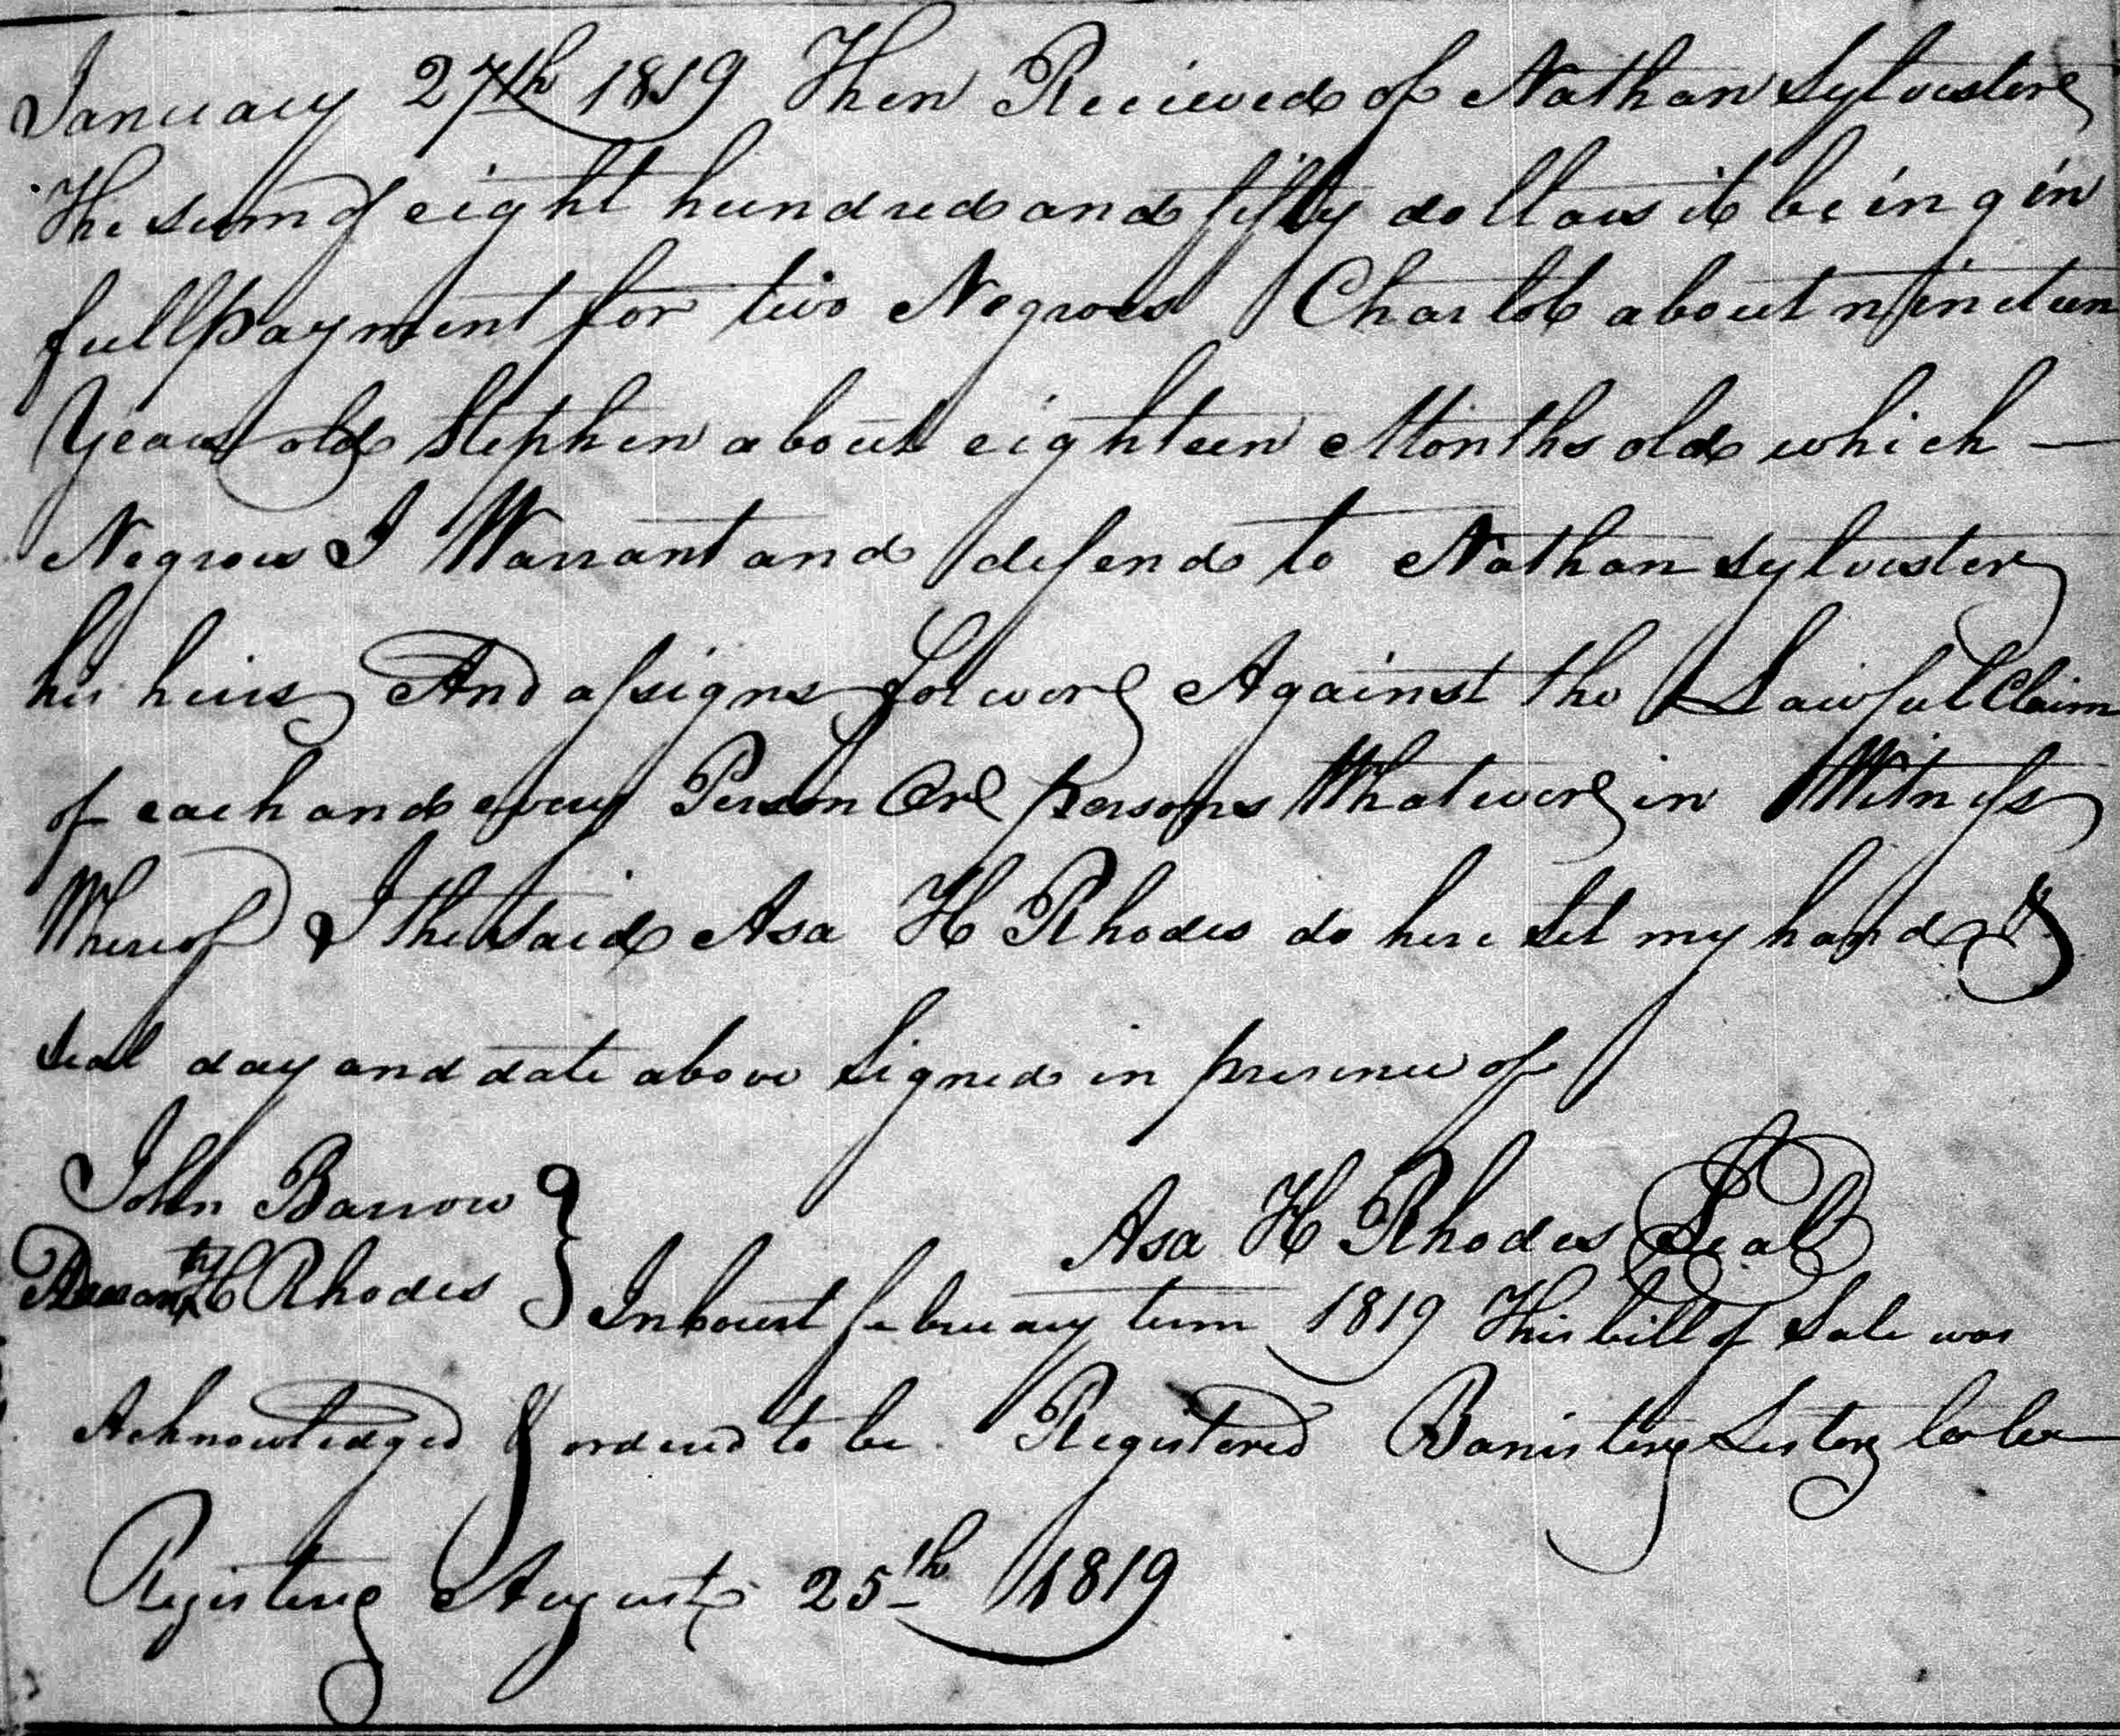 January 27th 1819 Then Recieved of Nathan Sylvester
The sum of eight hundred and fifty dollars it being in
full payment for two Negroes Charlot about nineteen
Years old Stephen about eighteen Months old which —
Negroes I Warrant and defend to Nathan Sylvester
his heirs And assigns forever Against the Lawful Claim
of each and every Person Or persons Whatever in Witness
Whereof I the said Asa H Rhodes do here set my hand &
seal day and date above Signed in presence of
John Barrow
Asa H Rhodes Seal
H Rhodes
In Court february term 1819 This bill of Sale was
Acknowledged & ordered to be Registered Banister Lester
Register August 25th 1819